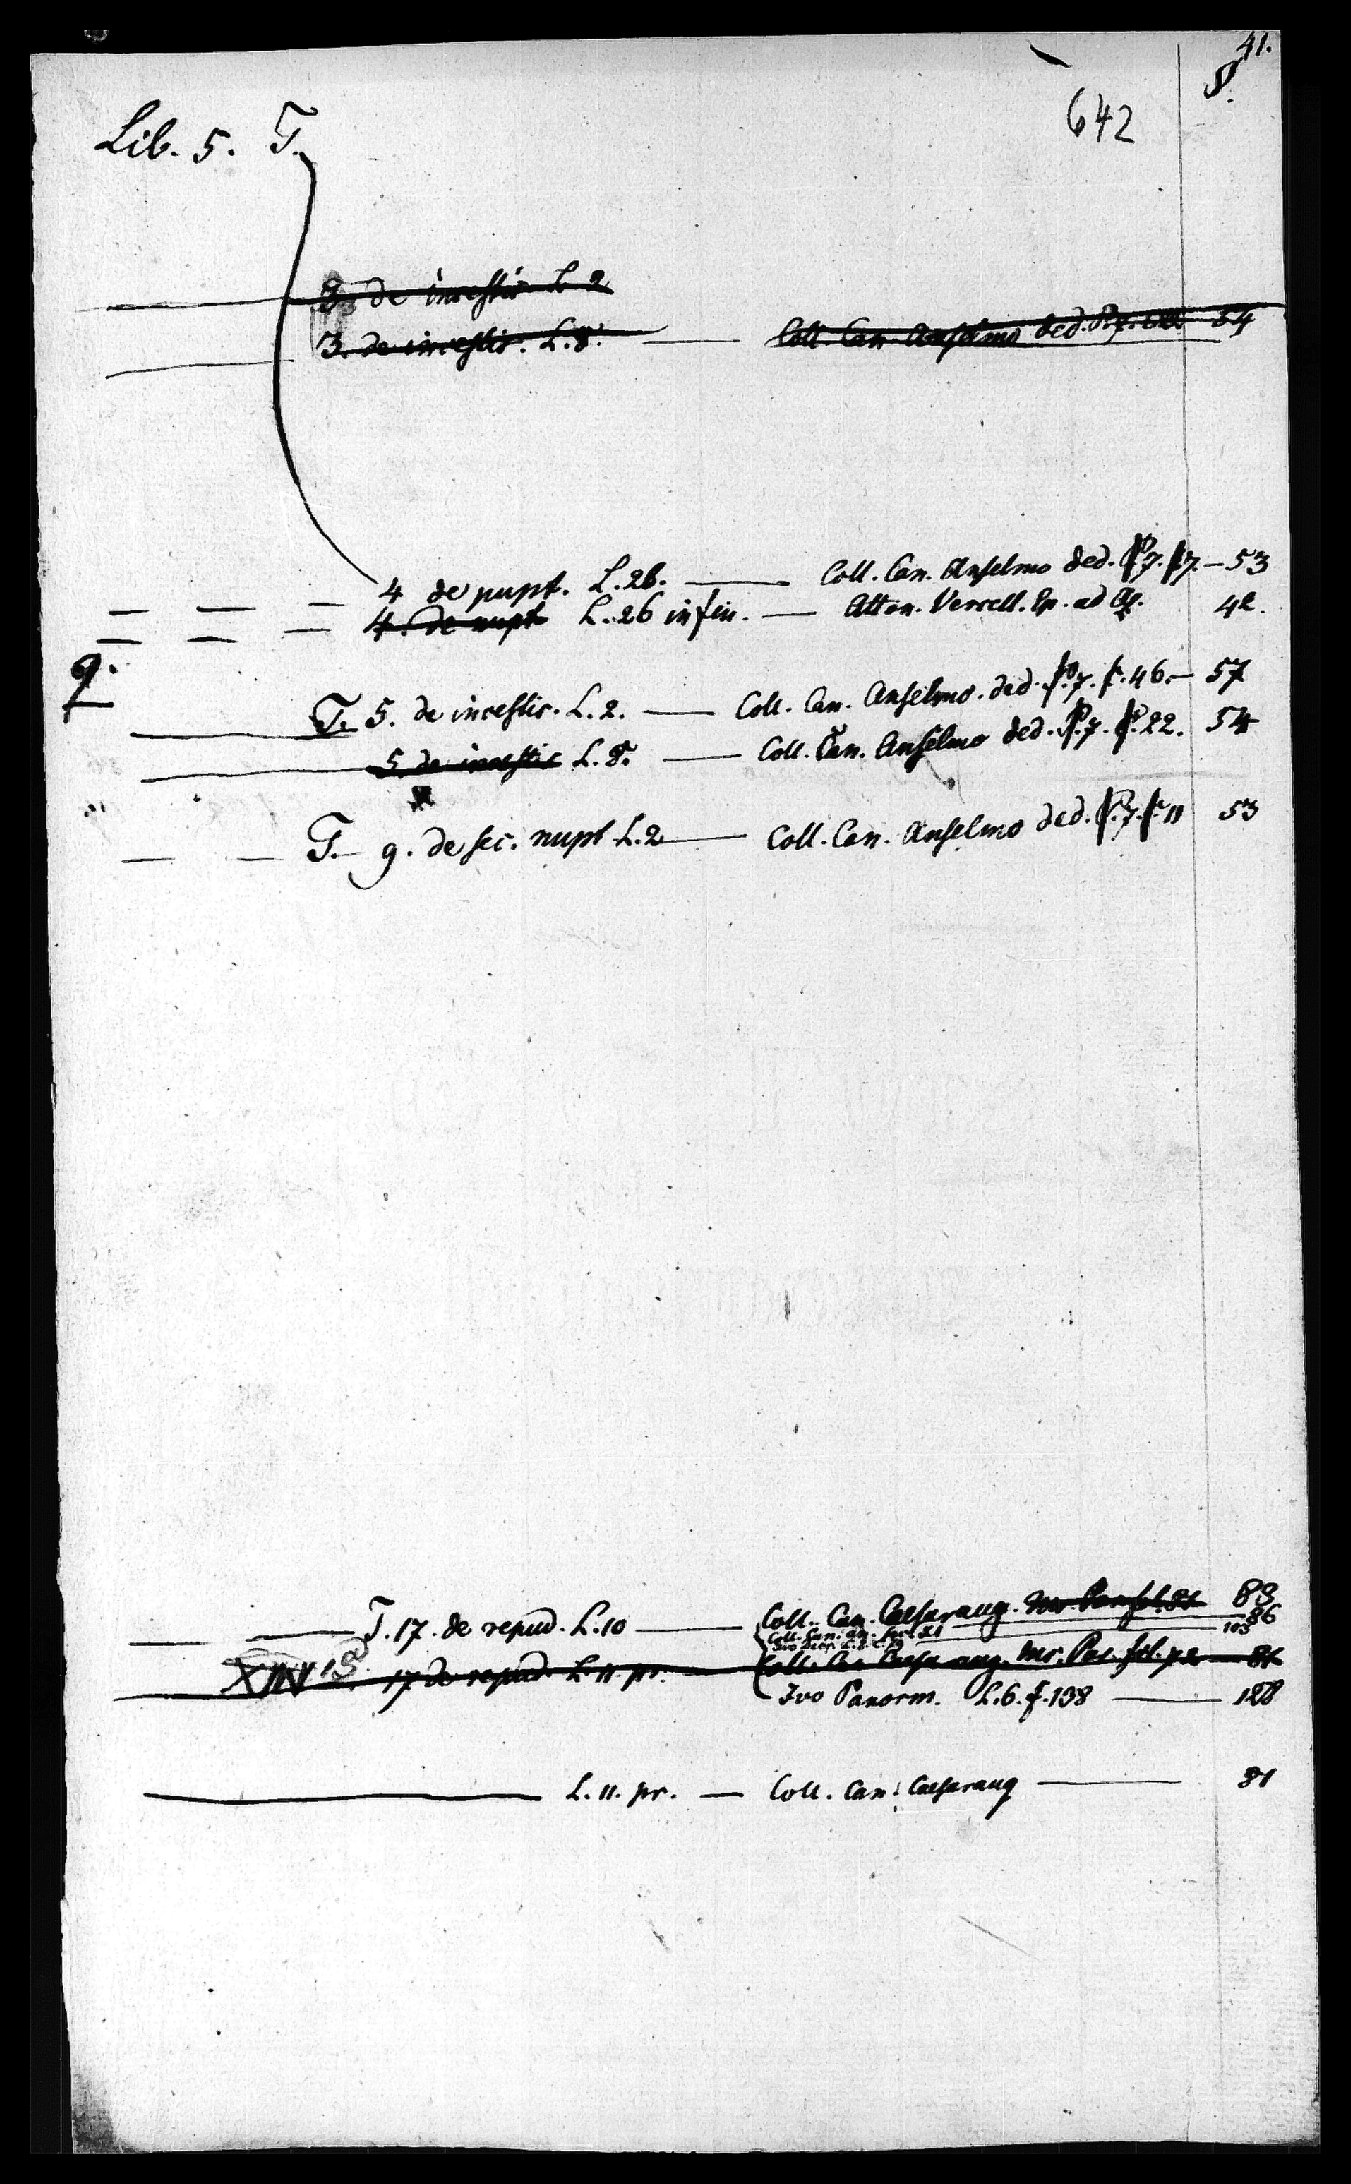 41.
642 §.
Lib. 5. T.
3. de incestis. L. 2
3. de incestis. L. 8. — Coll. Can. Anselmo ded. P. 7. 54
4 de nupt. L. 26. — Coll. Can. Anselmo ded. P. 7. — 53
4. de nupt L. 26 in fin. — Atton. Vercell. Ep. ad 42.
9.
T. 5. de incestis. L. 2. — Coll. Can. Anselmo. ded. P. 7. f. 46. — 57
5. de incestis L. 8. — Coll. Can. Anselmo ded. P. 7. f. 22. 54
T. — 9. de sec. nupt L. 2 — Coll. Can. Anselmo ded. P. 7. f. 11 53
T. 17. de repud. L. 10 — Coll. Can. Caesaraug. 83
86
103
17 de repud. L. 11. pr. — Coll. Can Caesaraug. Ms. Par. fol. 72 — 81
Ivo Panorm. L. 6. f. 108 — 128
L. 11. pr. — Coll. Can. Caesaraug — 81